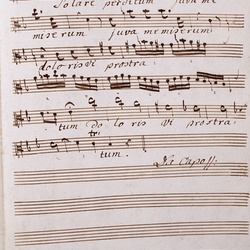 Solare perditum juva me
miserum juva me miserum
doloris vi prostra
tum do lo ris vi prostra
tr.
tum.
Da Capo